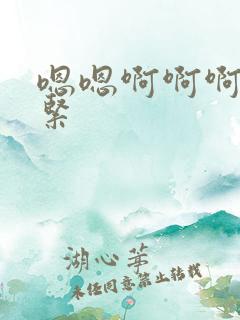 嗯嗯啊啊啊
紧
湖心茅
未经同意禁止转载